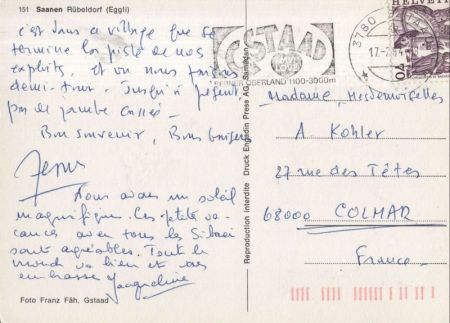 151 Saanen Rübeldorf (Eggli)
c'est dans ce village que se
termine la piste de nos
exploits, et où nous faisons
demi-tour. Jusqu'à présent,
pas de jambe cassée.
Bon souvenir, Bons baisers
Nous avons un soleil
magnifique. Les petites va-
cances avec tous les
sont agréables. Tout le
monde va bien et vous
embrasse Jacqueline
Foto Franz Fäh, Gstaad
Reproduction interdite Druck Engadin Press AG, Samedan
GSTAAD
BERNER OBERLAND 1100-3000m
3780
HELVETIA
Madame, Mesdemoiselles
A. Kohler
27 rue des Têtes
68000 COLMAR
France